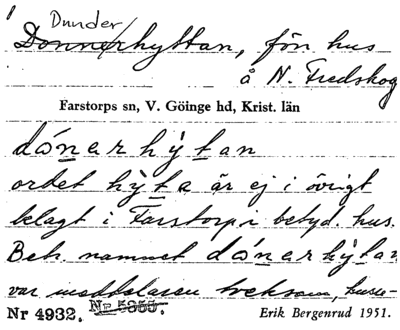 Dunder
Donnerhyttan, fön hus
å N. Fredskog
Farstorps sn, V. Göinge hd, Krist. län
dónarhỳtan
ordet hỳta är ej i övrigt
belagt i Farstorp i betyd. hus.
Beh. namnet dónarhỳtan
var meddelaren tveksam,
Nr 4932. Nr 5355. Erik Bergenrud 1951.